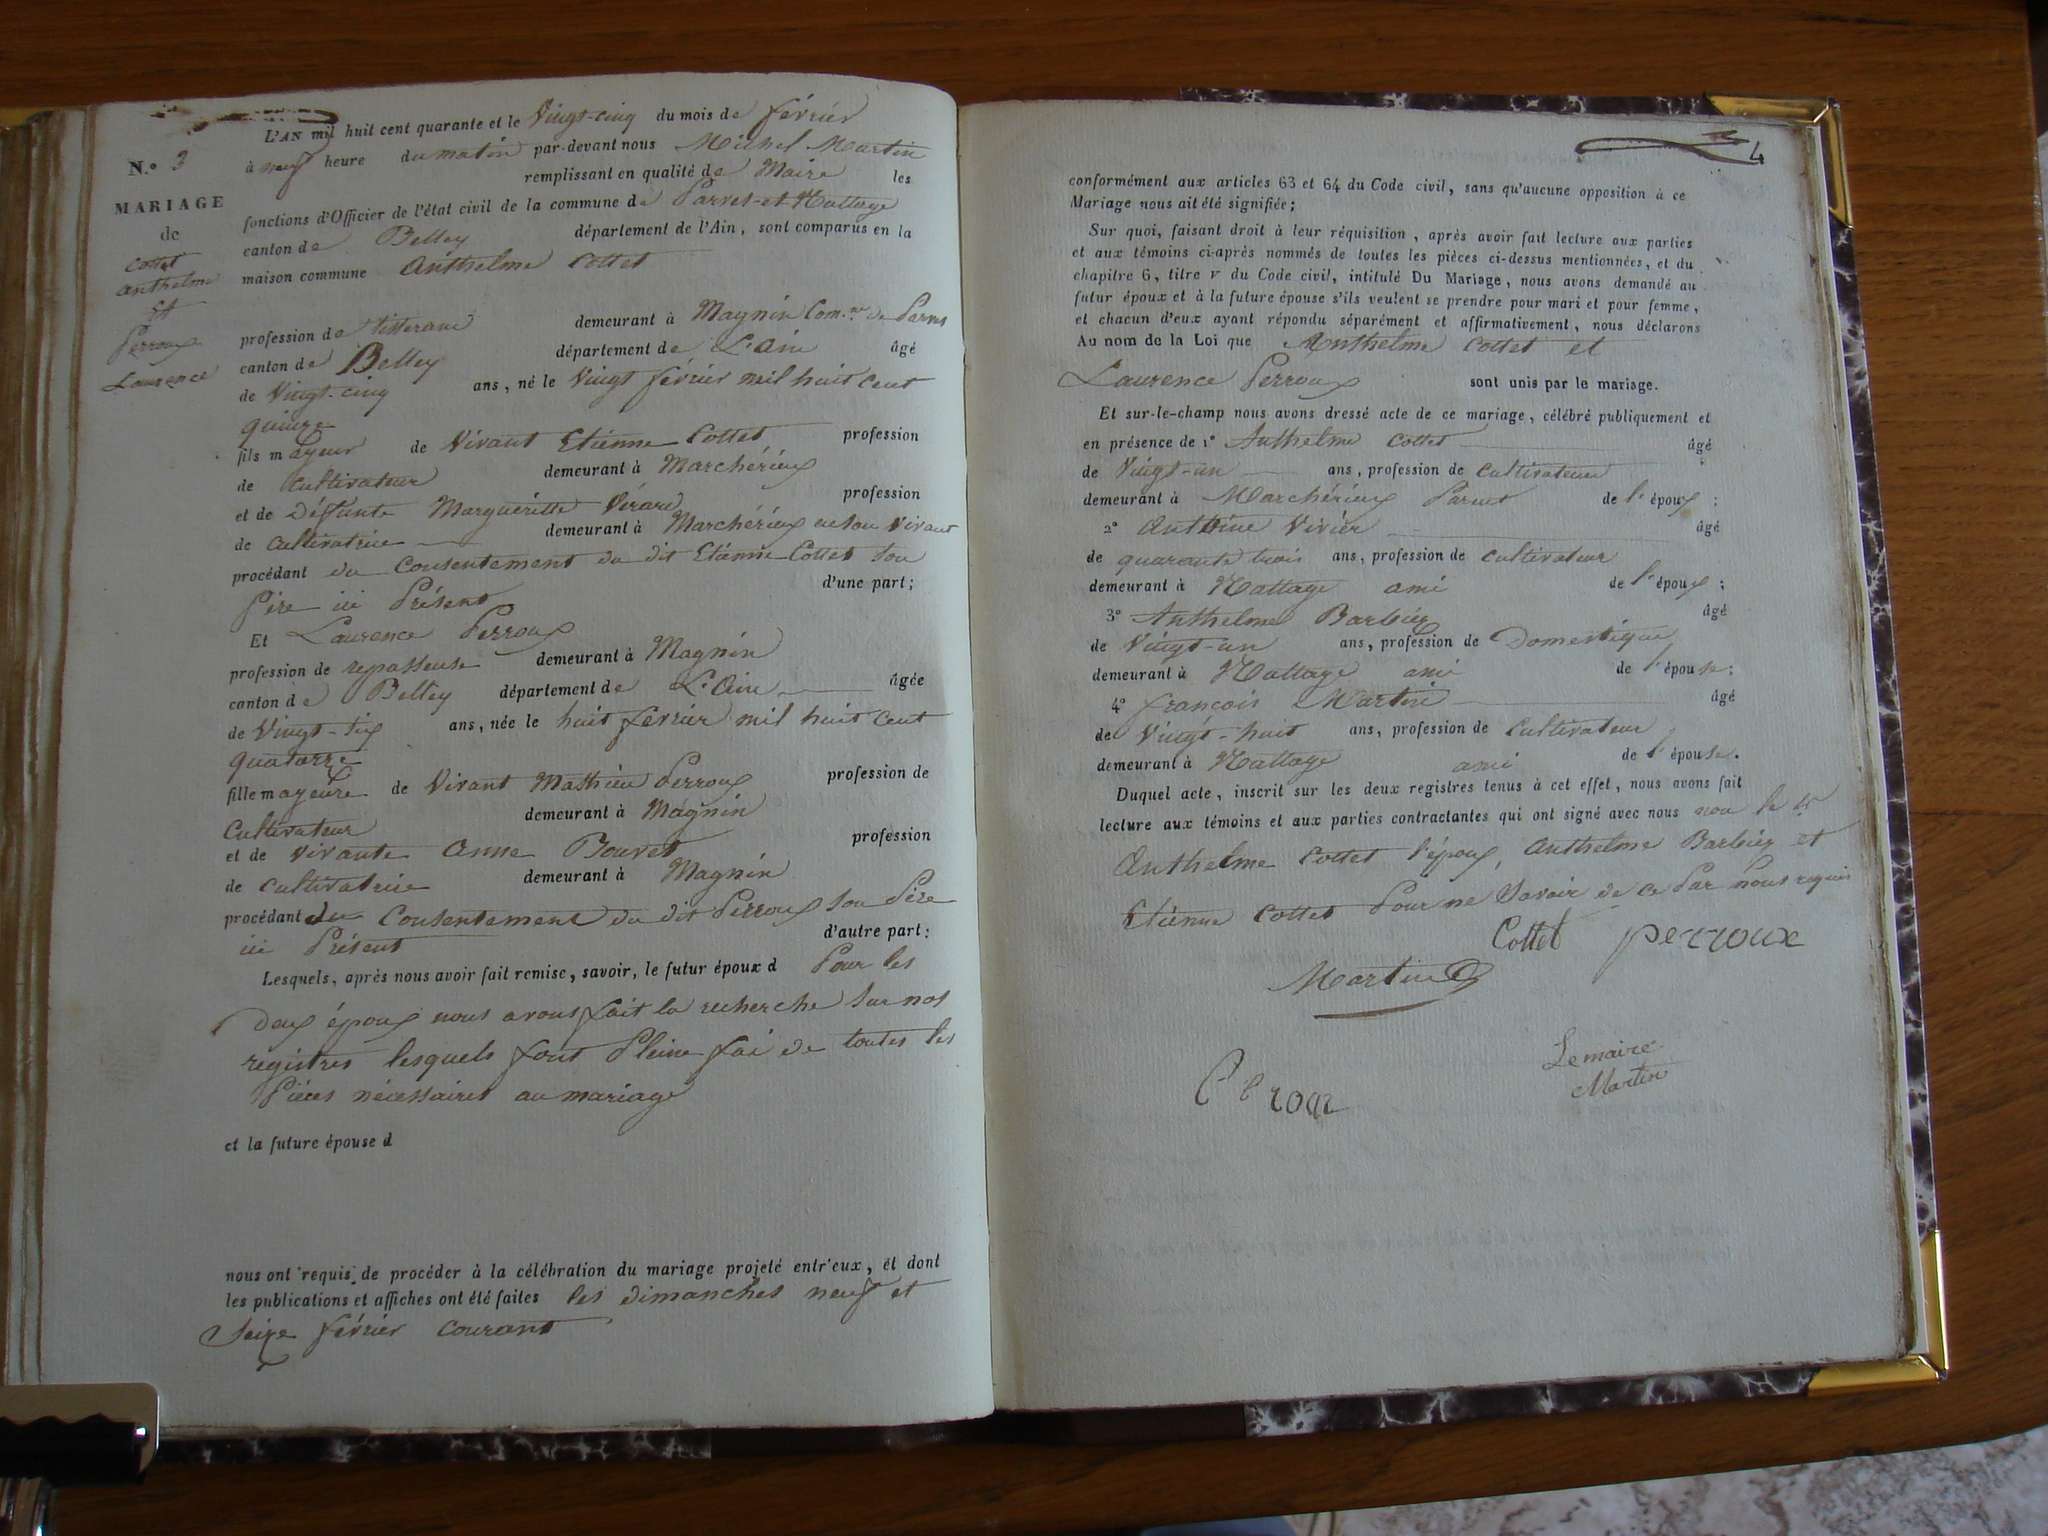 L'AN mil huit cent quarante et le Vingt-cinq du mois de février
N.º 3
à neuf heure du matin par-devant nous Michel Martin
remplissant en qualité de Maire les
MARIAGE
fonctions d'Officier de l'état civil de la commune de Parves-et Nattage
de
canton de Belley département de l'Ain, sont comparus en la
Cottet
maison commune Anthelme Cottet
Anthelme
Et
Perroux
Laurence
profession de tisserand demeurant à Magnin Com.ne de Parves
canton de Belley département de L'ain âgé
de Vingt-cinq ans, né le Vingt février mil huit cent
quinze
fils mayeur de Vivant Etienne Cottet profession
de Cultivateur demeurant à Marchérieux
et de Défunte Marguéritte profession
de Cultivatrice demeurant à Marchérieux en son Vivant
procédant du Consentement du dit Etienne Cottet son
Père ici Présent d'une part;
Et Laurence Perroux
profession de repasseuse demeurant à Magnin
canton de Belley département de L'ain âgée
de Vingt-six ans, née le huit février mil huit cent
quatorze
fille mayeure de Vivant Mathieu Perroux profession de
Cultivateur demeurant à Magnin
et de vivante Anne Bouvet profession
de Cultivatrice demeurant à Magnin
procédant du Consentement du dit Perroux son Père
ici Présent d'autre part:
Lesquels, après nous avoir fait remise, savoir, le futur époux d Pour les
Deux époux nous avons fait la recherche sur nos
registres lesquels font Pleine foi de toutes les
Pièces nécessaires au mariage
et la future épouse d
nous ont requis de procéder à la célébration du mariage projeté entr'eux, et dont
les publications et affiches ont été faites les dimanches neuf et
Seize février courant
4
conformément aux articles 63 et 64 du Code civil, sans qu'aucune opposition à ce
Mariage nous ait été signifiée;
Sur quoi, faisant droit à leur réquisition, après avoir fait lecture aux parties
et aux témoins ci-après nommés de toutes les pièces ci-dessus mentionnées, et du
chapitre 6, titre v du Code civil, intitulé Du Mariage, nous avons demandé au
futur époux et à la future épouse s'ils veulent se prendre pour mari et pour femme,
et chacun d'eux ayant répondu séparément et affirmativement, nous déclarons
Au nom de la Loi que Anthelme Cottet et
Laurence Perroux sont unis par le mariage.
Et sur-le-champ nous avons dressé acte de ce mariage, célébré publiquement et
en présence de 1º Anthelme Cottet âgé
de Vingt-un ans, profession de Cultivateur
demeurant à Marchérieux de l'époux;
2º Antoine Vivier âgé
de quarante trois ans, profession de Cultivateur
demeurant à Nattage ami de l'époux;
3º Anthelme Barbier âgé
de Vingt-un ans, profession de Domestique
demeurant à Nattage ami de l'épouse;
4º François Martin âgé
de Vingt-huit ans, profession de Cultivateur
demeurant à Nattage ami de l'épouse.
Duquel acte, inscrit sur les deux registres tenus à cet effet, nous avons fait
lecture aux témoins et aux parties contractantes qui ont signé avec nous non le Sr
Anthelme Cottet l'époux, Anthelme Barbier et
Etienne Cottet Pour ne Savoir de ce Par nous requis
Cottet perroux
Martin
Lemaire
Martin